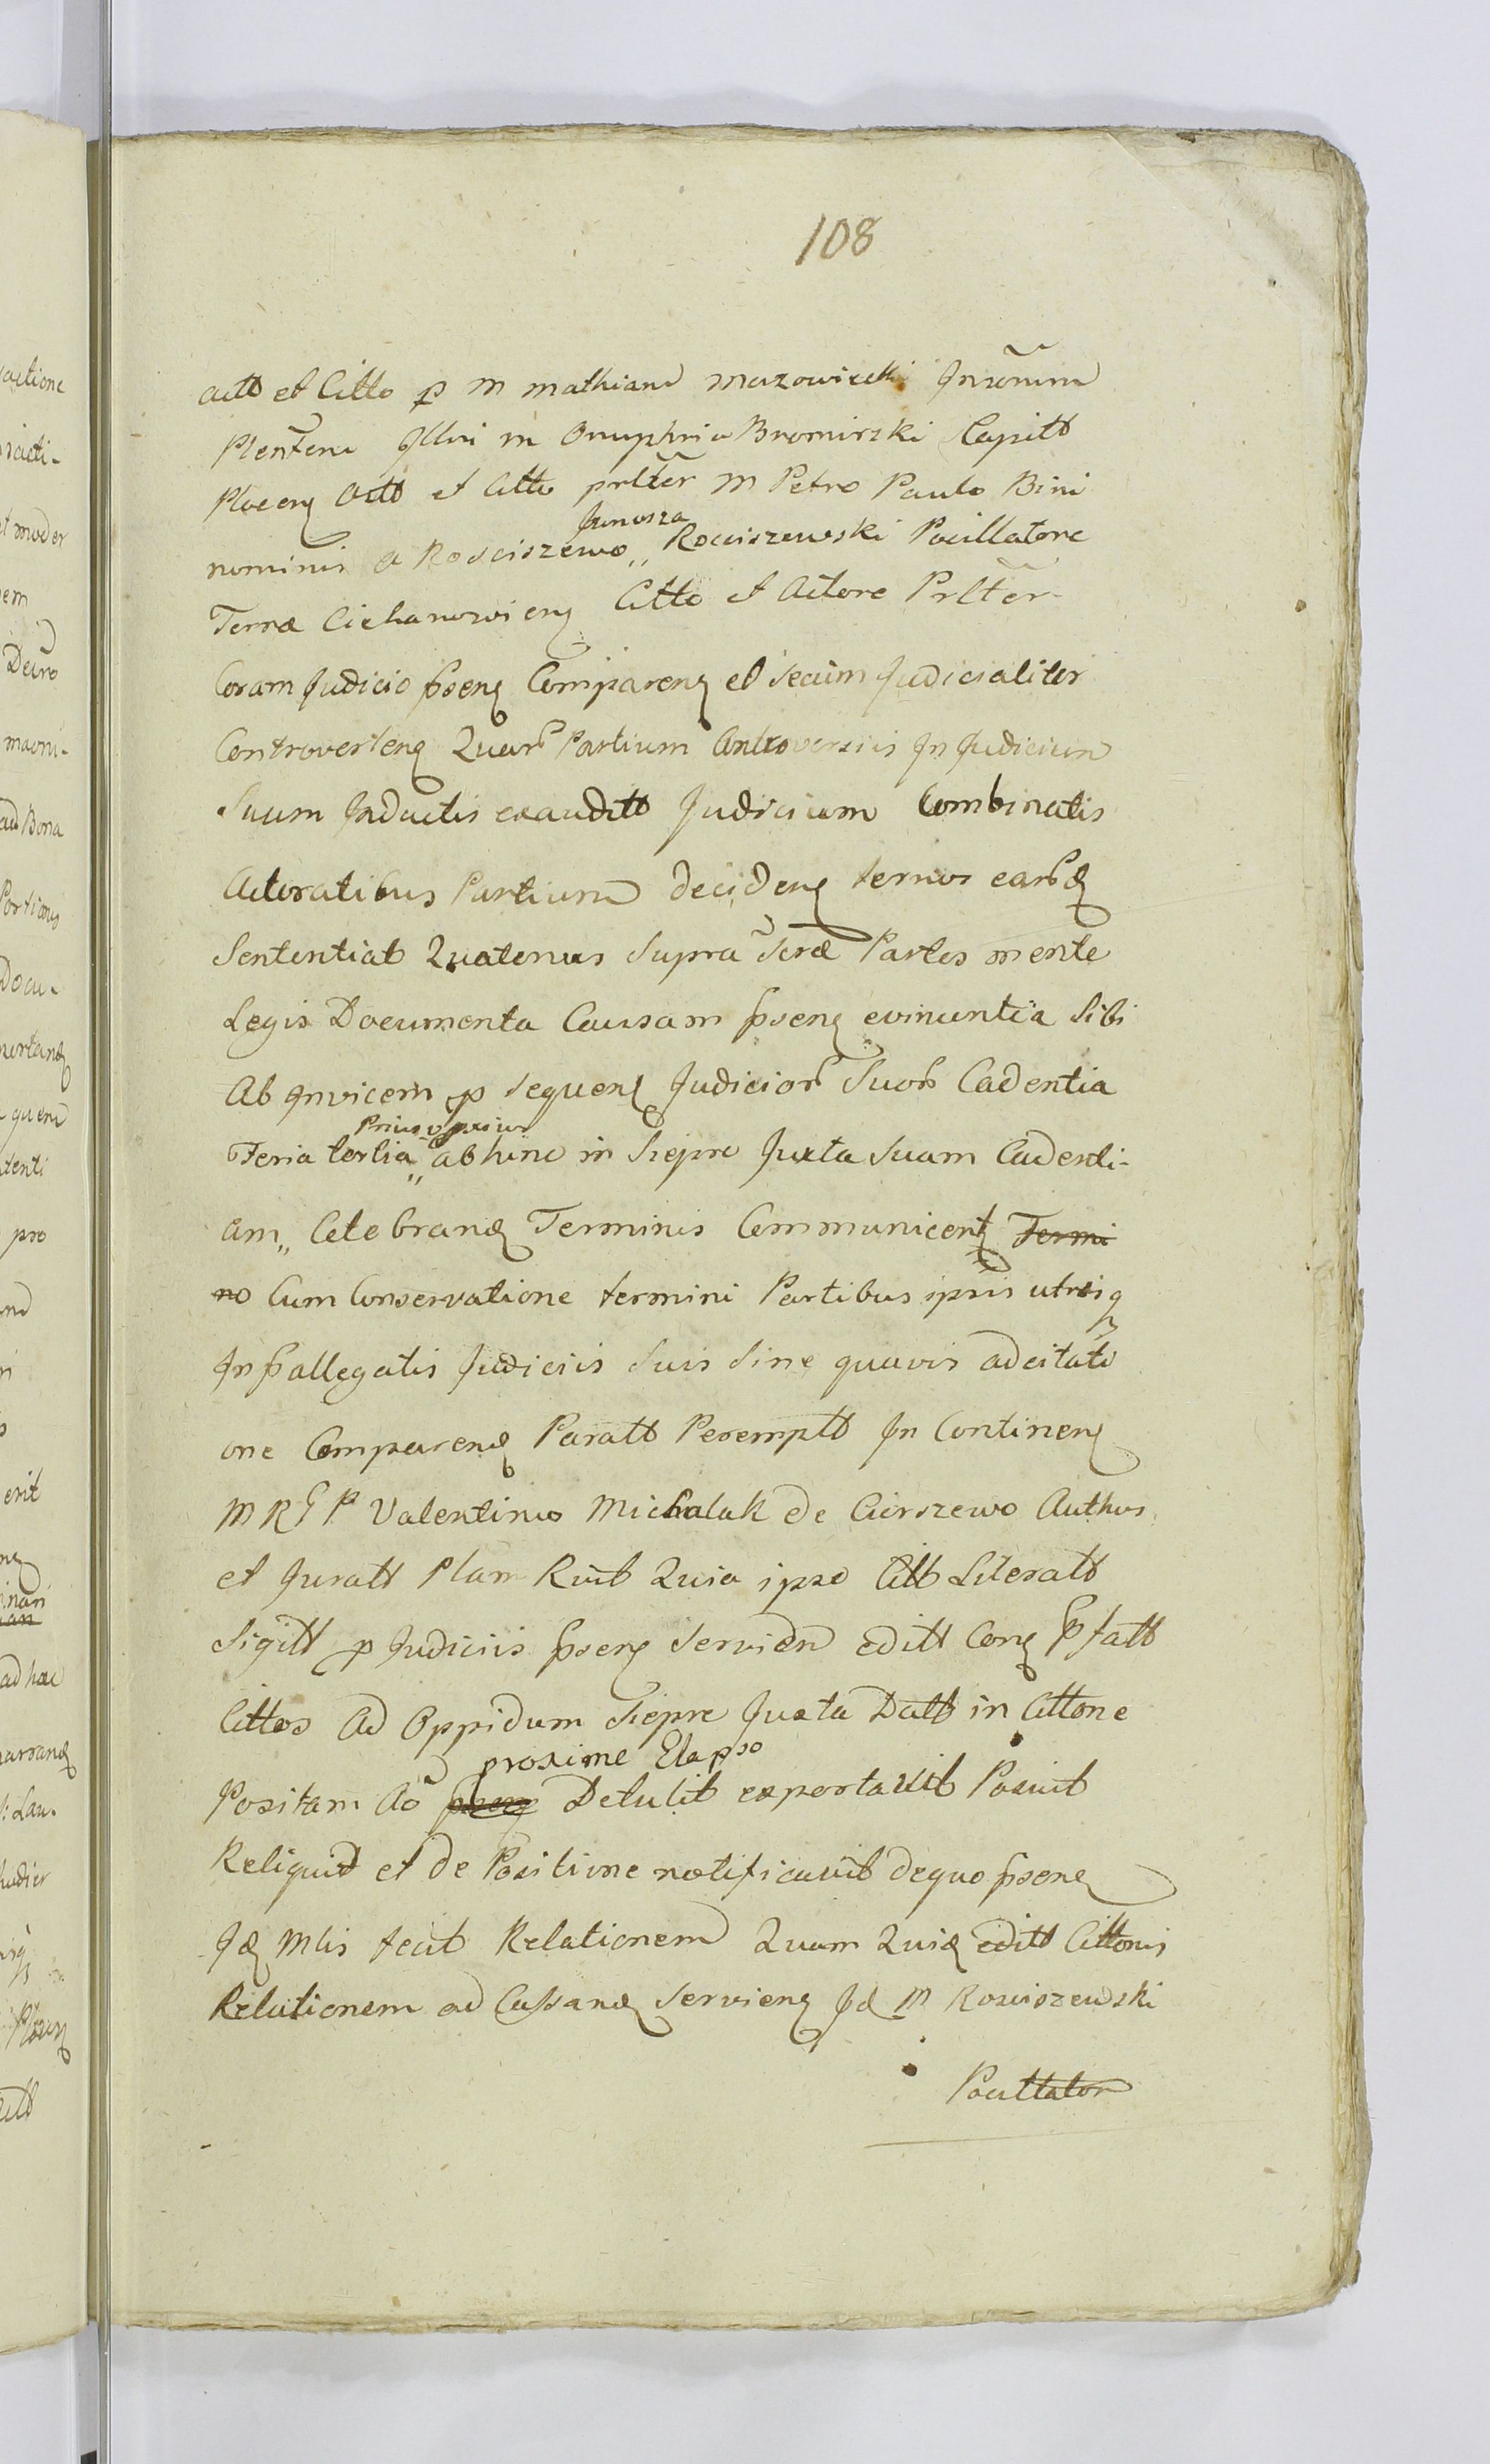 108
actt et Citto p M Mathiam Mazowiecki Jnronum
Plentem Jllri M Onuphrio Bromirski Capitt
Plocen Actt et Citto prlter M Petro Paulo Bini
Junosza
nominis a Rosciszewo „ Rosciszewski Pocillatore
Terræ Ciechanowien Citto et Actore Prlter
Coram Judicio prsen Comparen et secum Judicialiter
Controverten Quar Partium Controversiis Jn Judicium
Suum Jnductis exauditt Judicium Combinatis
Actoratibus Partium deciden ternos earq
Sententiat Quatenus Supra Scræ Partes mente
Legis Documenta Causam prsen evinuntia Sibi
Ab Jnvicem p sequen Judicior Suor Cadentia
Prius v prius
Feria tertia „ ab hinc in Siepre Juxta Suam Cadenti-
am „ Celebrand Terminis Communicent Termi
no Cum Conservatione termini Partibus ipsis utrisq
Jn prallegatis Judiciis Suis Sine quavis adcitati
one Comparend Paratt Peremptt Jn Continen
M R P Valentinus Michalak de Cierszewo Authus
et Juratt Plam Ruit Quia ipse Citt Literatt
Sigitt p Judiciis prsen Servien editt Con prfatt
Cittos Ad Oppidum Siepre Juxta Datt in Cittone
proxime Elapso
Positam Ao prsen Detulit exportavit Posuit
Reliquit et de Positione notificavit dequo prsen
Jd Mlis fecit Relationem Quam Quid editt Cittonis
Relationem ad Cassand Servien Jd M Rosciszewski
Pocillator